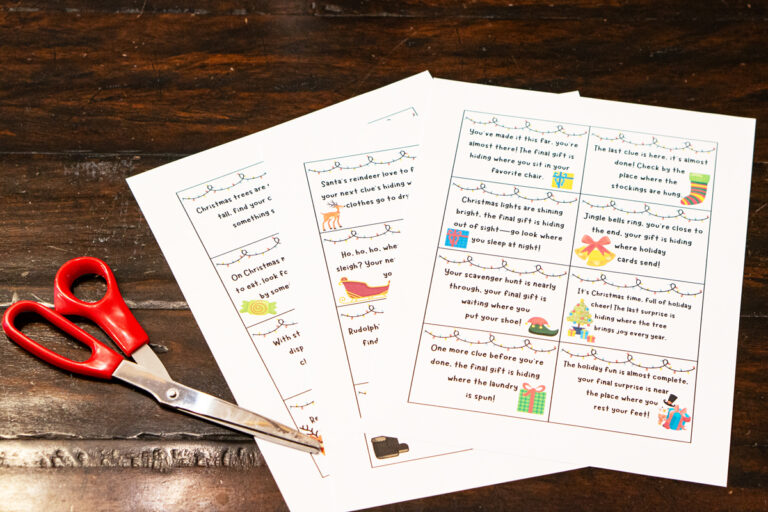 Christmas trees are
tall, find your c
something s
On Christmas
to eat, look fo
by some
With st
disp
cl
Santa's reindeer love to f
your next clue's hiding w
clothes go to dry
Ho, ho, ho, whe
sleigh? Your ne
yo
Rudolph
find
You've made it this far, you're
almost there! The final gift is
hiding where you sit in your
favorite chair.
The last clue is here, it's almost
done! Check by the
place where the
stockings are hung.
Christmas lights are shining
bright, the final gift is hiding
out of sight—go look where
you sleep at night!
Jingle bells ring, you're close to
the end, your gift is hiding
where holiday
cards send!
Your scavenger hunt is nearly
through, your final gift is
waiting where you
put your shoe!
It's Christmas time, full of holiday
cheer! The last surprise is
hiding where the tree
brings joy every year.
One more clue before you're
done, the final gift is hiding
where the laundry
is spun!
The holiday fun is almost complete,
your final surprise is near
the place where you
rest your feet!